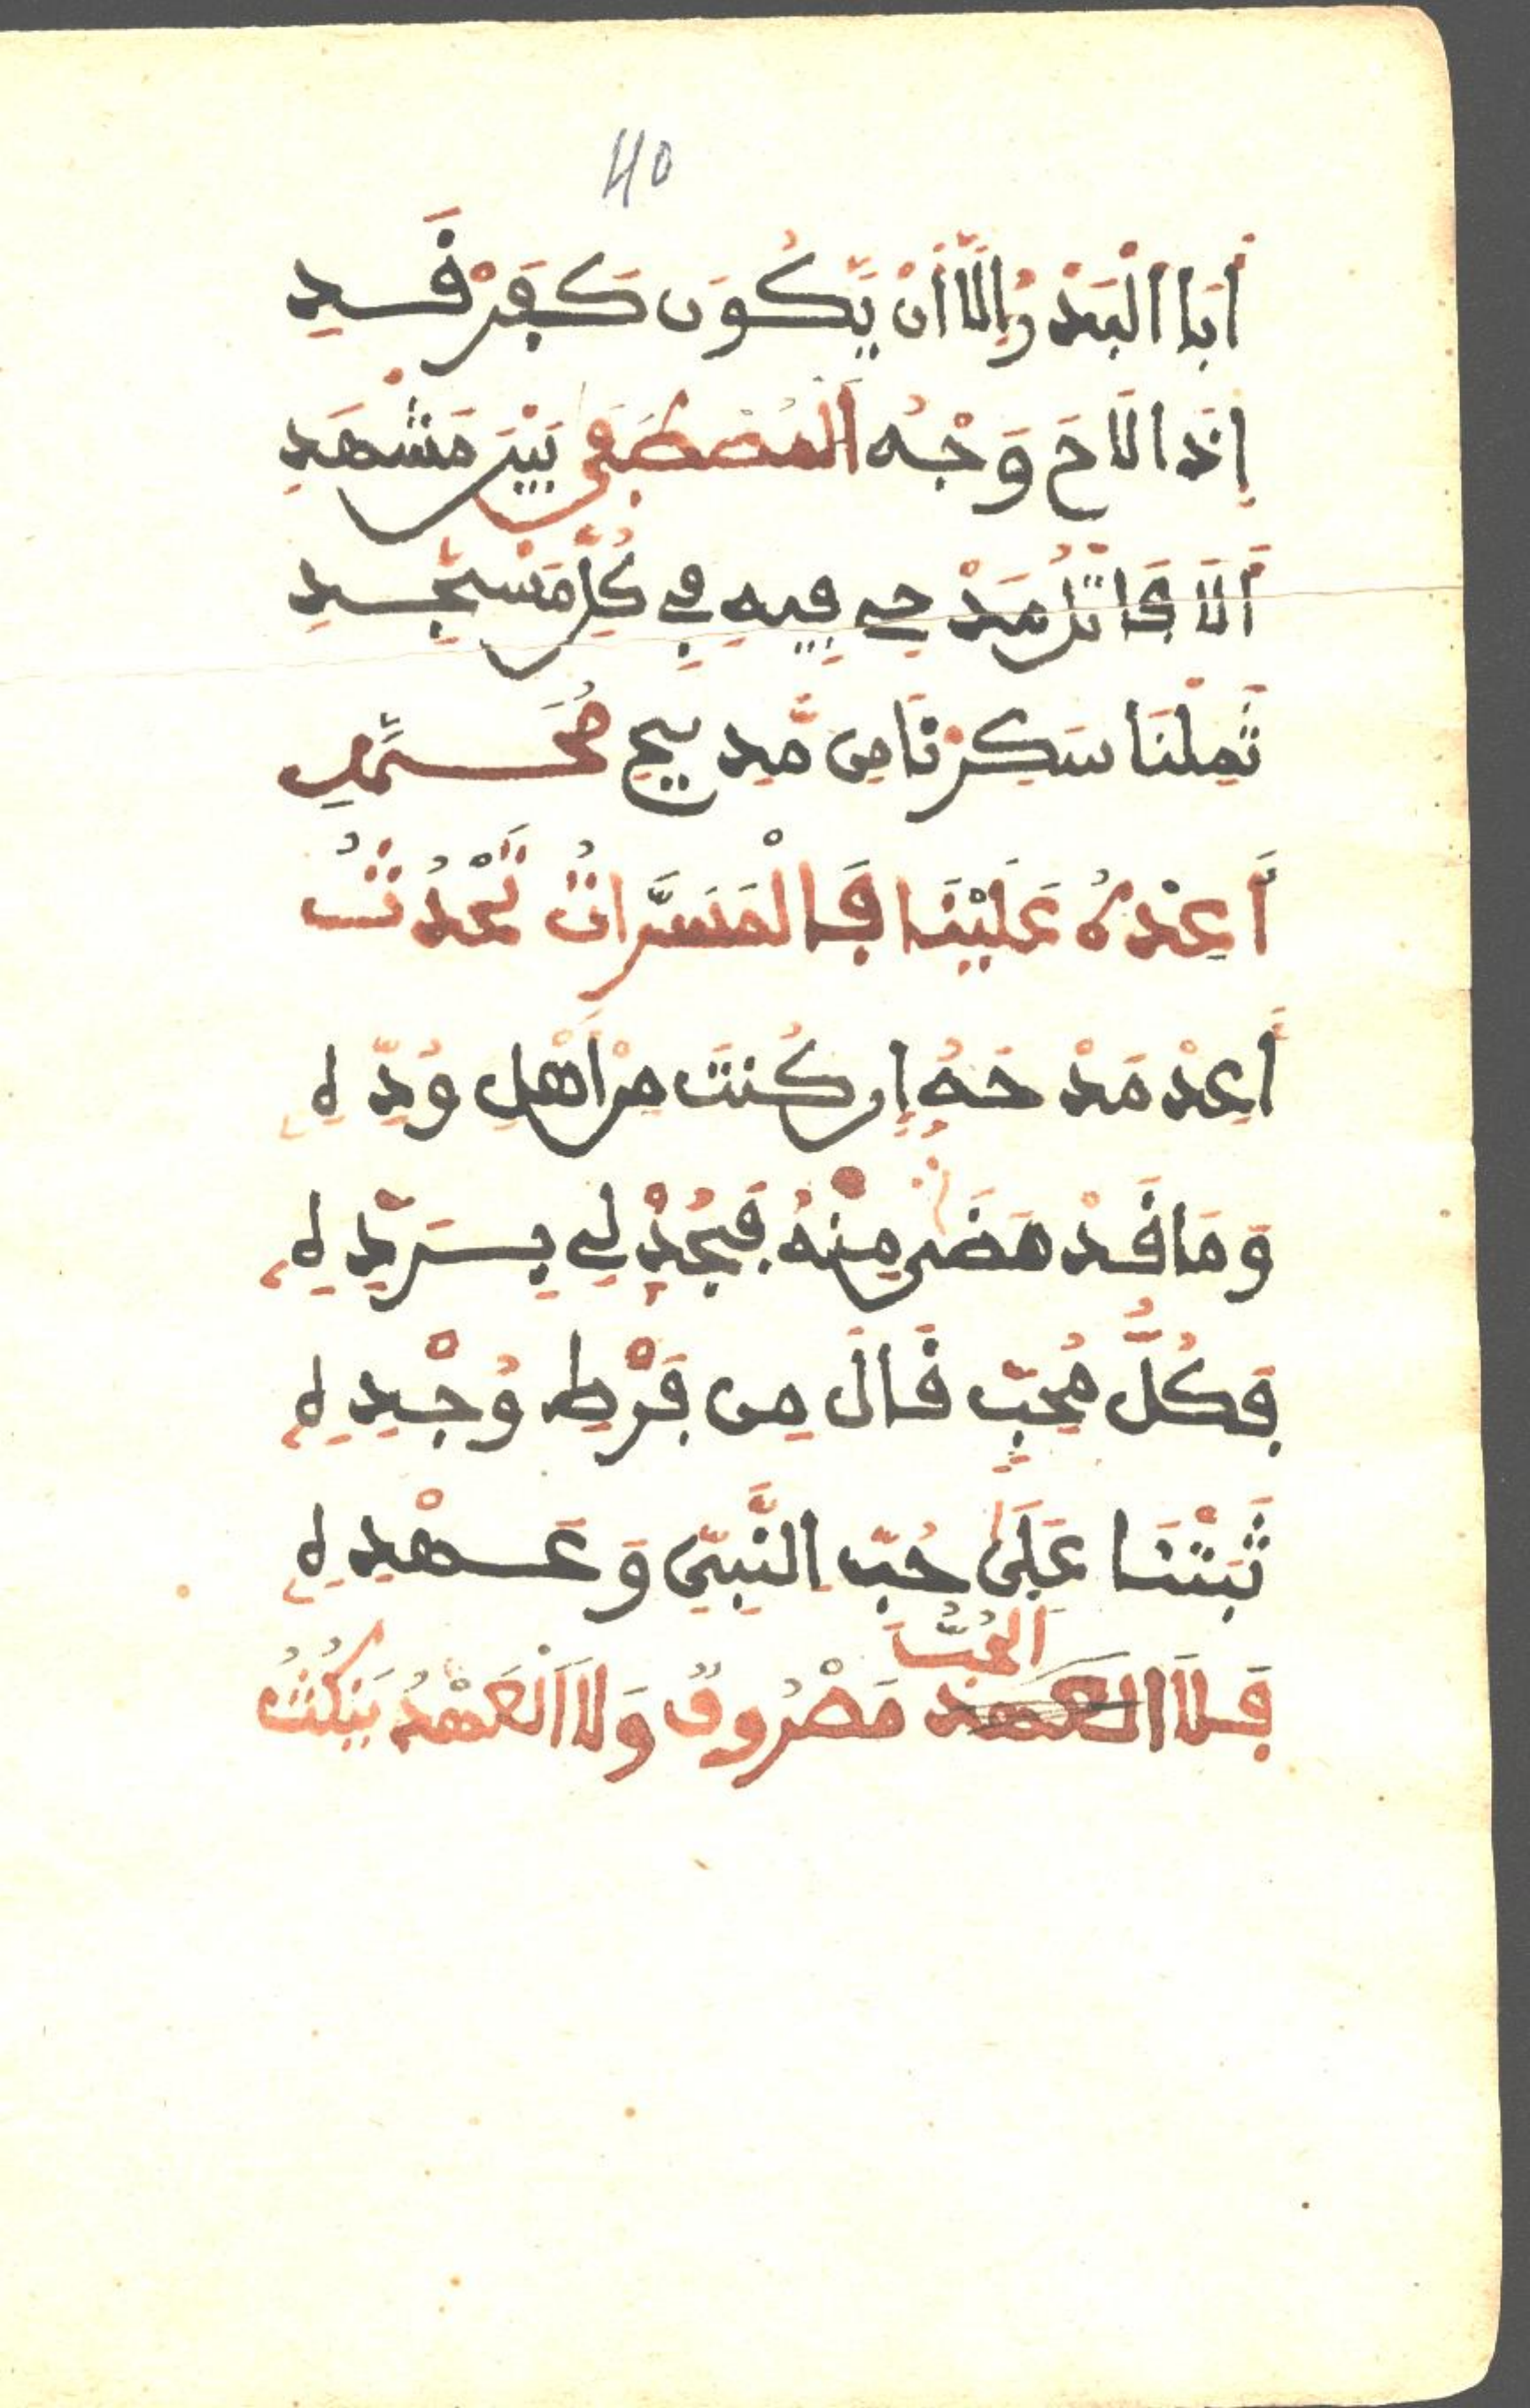 40
أَبَا الْبَدْرُ إِلَّا أَنْ يَّكُونَ كَفَرْقَدِ
إِذَا لَاحَ وَجْهُ الْمُصْطَفَى بَيْنَ مَشْهَدِ
أَلَا فَاتْلُ مَدْحِي فِيهِ فِي كُلِّ مَسْجِدِ
ثَمِلْنَا سَكِرْنَا مِن مَّدِيحِ مُحَمَّدٍ
أَعِدْهُ عَلَيْنَا فَالْمَسَرَّاتُ تَحْدُثُ
أَعِدْ مَدْحَهُ إِن كُنتَ مِنْ أَهْلِ وُدِّهِ
وَمَا قَدْ مَضَى مِنْهُ فَجُدْ لِي بِسَرْدِهِ
فَكُلُّ مُحِبٍّ قَالَ مِن فَرْطِ وُجْدِهِ
ثَبَتْنَا عَلَى حُبِّ النَّبِيِّ وَعَهْدِهِ
الحُبُّ
فَلَا العهد مَصْرُوفٌ وَلَا الْعَهْدُ يَنكُثُ